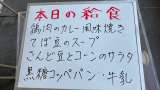 本日の給食
鶏肉のカレー風味焼き
てぼ豆のスープ
さんど豆とコーンのサラダ
黒糖コッペパン・牛乳